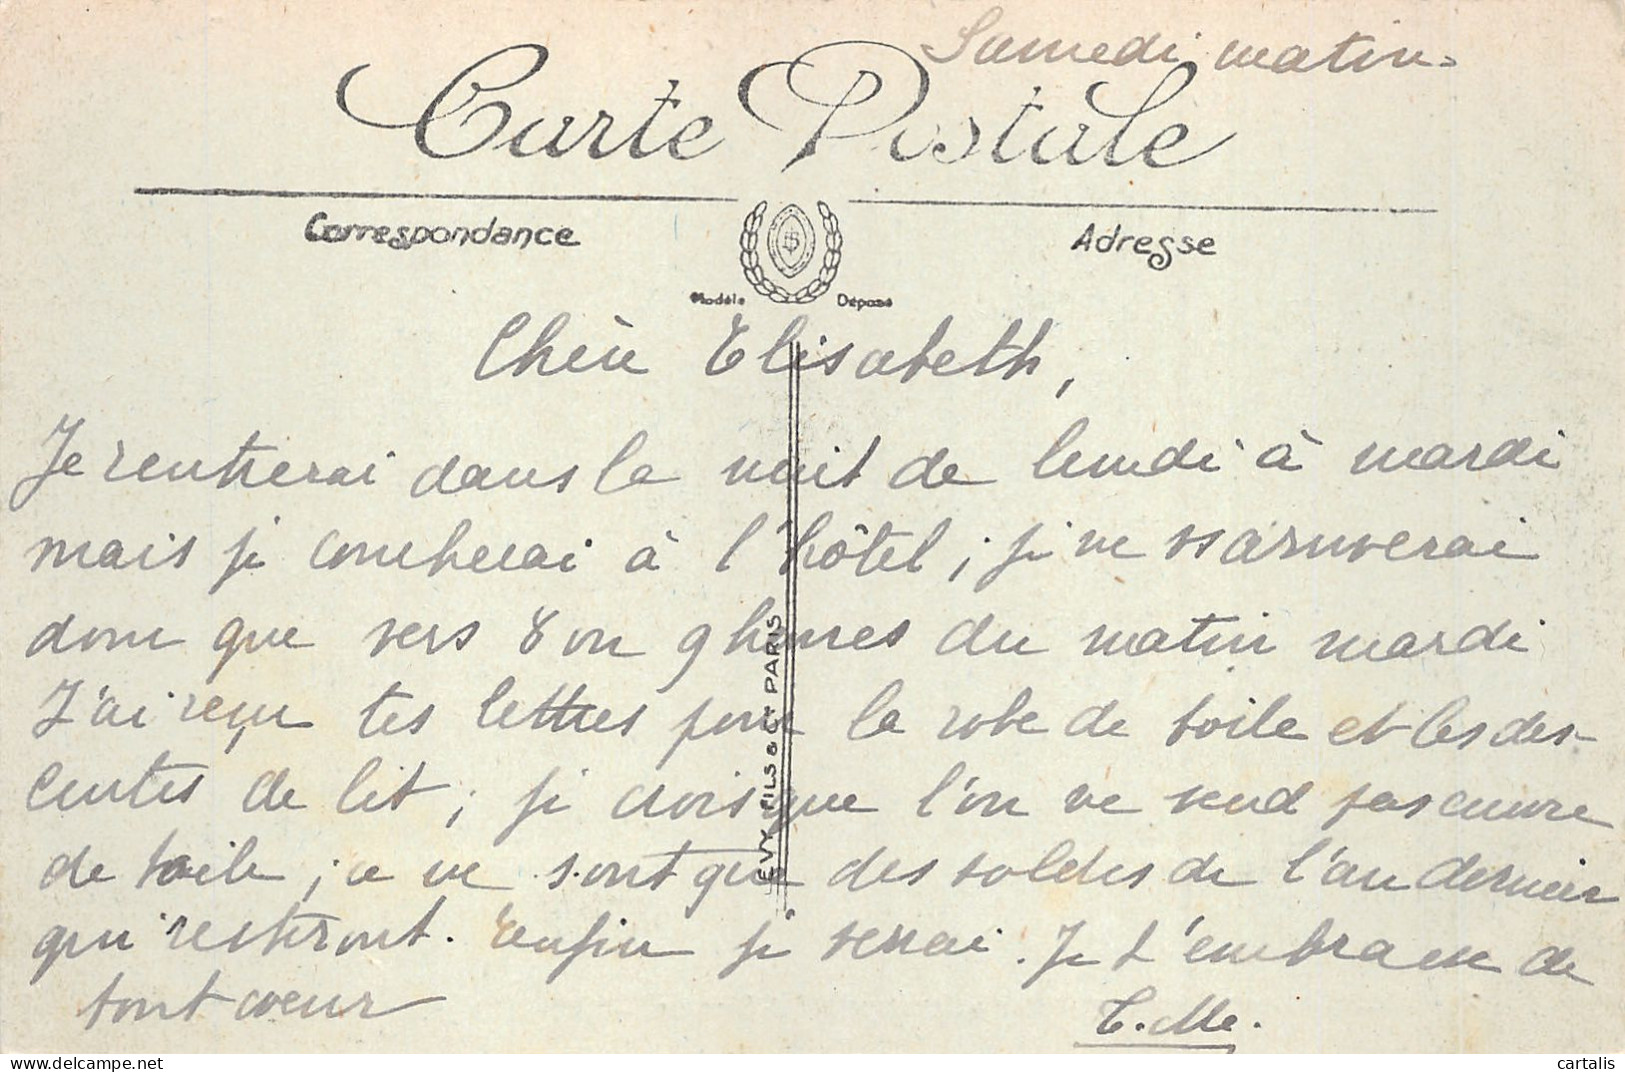 Samedi matin.
Carte Postale
Correspondance
Adresse
Modèle Déposé
Chère Elisabeth,
Je rentrerai dans la nuit de lundi à mardi
mais je coucherai à l'hôtel ; je ne
donc que vers 8 ou 9 heures du matin mardi
J'ai reçu tes lettres pour la robe de toile et les des-
centes de lit ; je crois que l'on ne vend pas encore
de toile ; ce ne sont que des soldes de l'an dernier
qui resteront. Enfin je verrai. Je t'embrasse de
tout cœur
LEVY FILS & Cie PARIS
cartalis